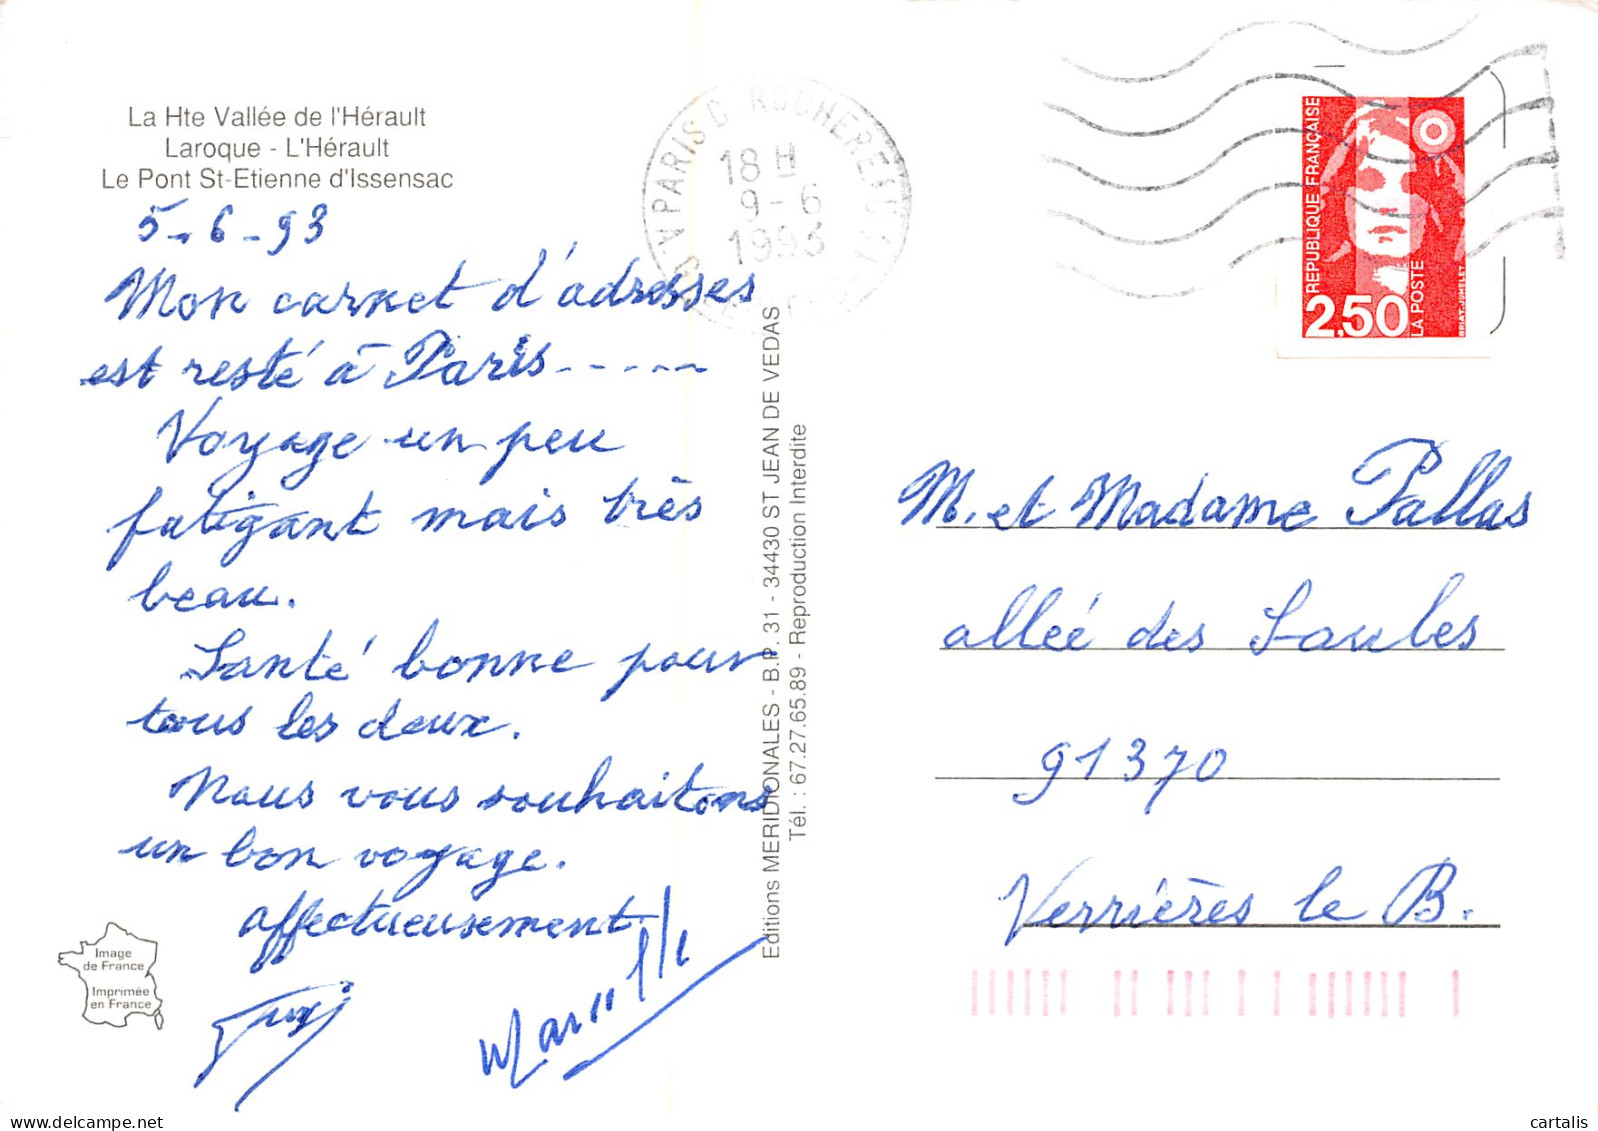 La Hte Vallée de l'Hérault
Laroque - L'Hérault
Le Pont St-Etienne d'Issensac
5-6-93
Mon carnet d'adresses
est resté à Paris-----
Voyage un peu
fatigant mais très
beau.
Santé bonne pour
tous les deux.
Nous vous souhaitons
un bon voyage.
affectueusement.
Marcelle
Image
de France
Imprimée
en France
Editions MERIDIONALES - B.P. 31 - 34430 ST JEAN DE VEDAS
Tél. : 67.27.65.89 - Reproduction Interdite
PARIS D. ROCHEREAU
18 H
9-6
1993
REPUBLIQUE FRANÇAISE
2,50
LA POSTE
BRIAT-JUMELET
M. et Madame Pallas
allée des Saules
91370
Verrières le B.
cartalis